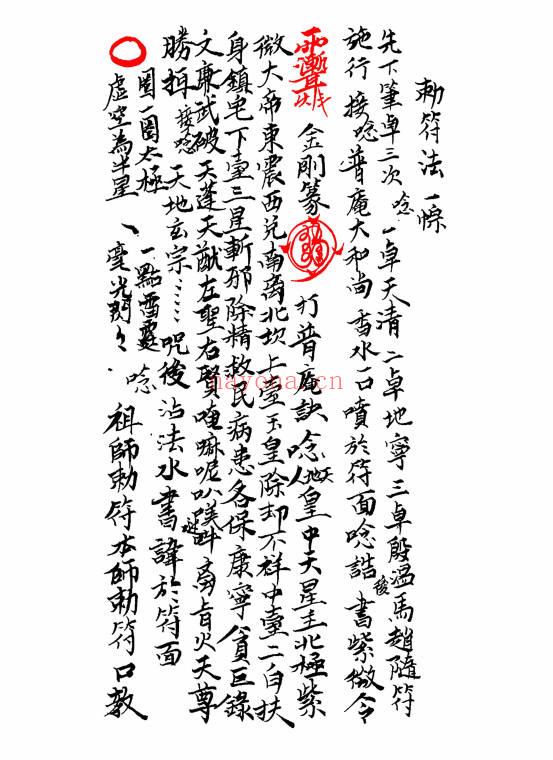 勅符法一條
先下筆卓三次 唸 一卓天清二卓地寧三卓殷溫馬趙隨符
施行 接唸 普庵大和尚香水一口噴於符面唸誥後書紫微令
金剛篆 打普庵訣唸天地人皇中天星主北極紫
微大帝東震西兌南离北坎上臺玉皇除却不祥中臺二白扶
身鎮宅下臺三星斬邪除精救民病患各保康寧貪巨錄
文廉武破天蓬天猷左聖右賢 嘛呢叭 吽 火天尊
勝 接唸 天地玄宗……咒後沾法水書諱於符面
圈一圈太極 一點雷霆 唸
虛空為半星、毫光閃々 祖師勅符本師勅符口教
nayona.cn